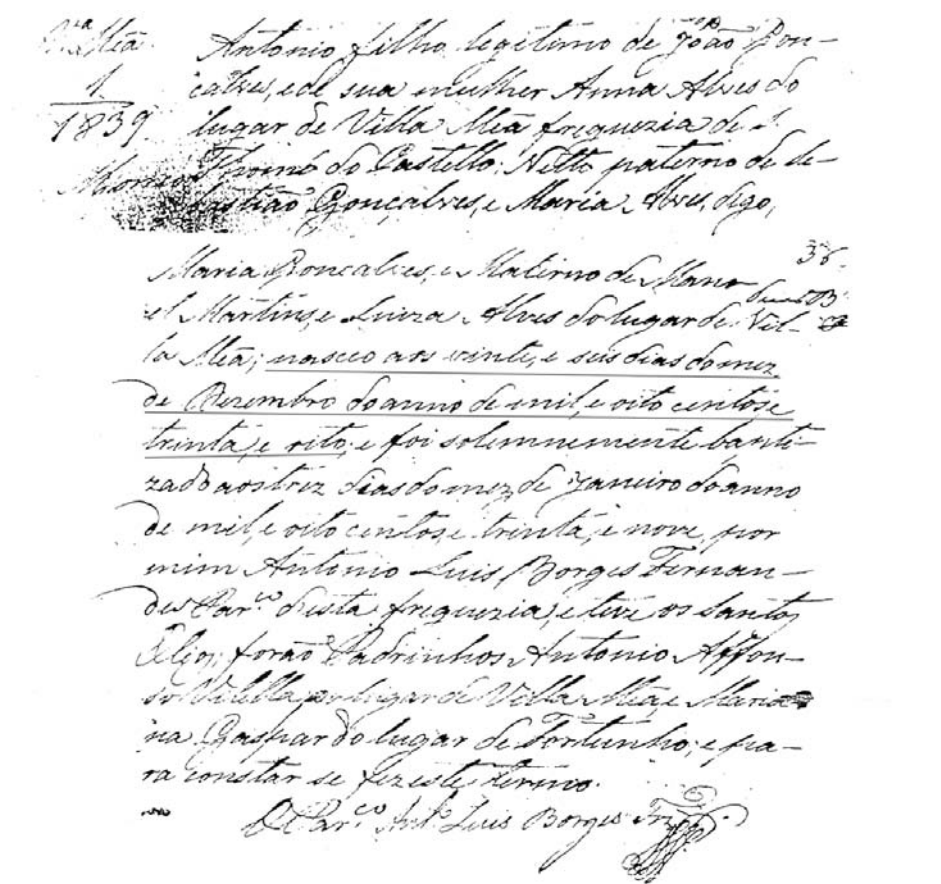 Vª Meã
1
1839
Morreo
Antonio filho legitimo de João Gon-
calves, e de sua mulher Anna Alves do
lugar de Villa Meã freguezia de S.
Thomé do Castello; Netto paterno de Se-
bastião Gonçalves, e Maria Alves, digo,
36
Maria Goncalves, e Materno de Mano-
el Martins, e Luiza Alves do lugar de Vil-
la Meã; nasceo aos vinte, e seis dias do mez
de Dezembro do anno de mil, e oito centos, e
trinta, e oito; e foi solemnemente bauti-
zado aos trez dias do mez de Janeiro do anno
de mil, e oito centos, e trinta, e nove, por
mim Antonio Luis Borges Fernan-
des Par.co desta freguezia, e teve os Santos
Oleos; forão Padrinhos Antonio Affon-
so Vilella do lugar de Villa Meã, e Maria
na Gaspar do lugar de Fortunho; e pa-
ra constar se fez este termo.
O Par.co Ant.o Luis Borges Frz